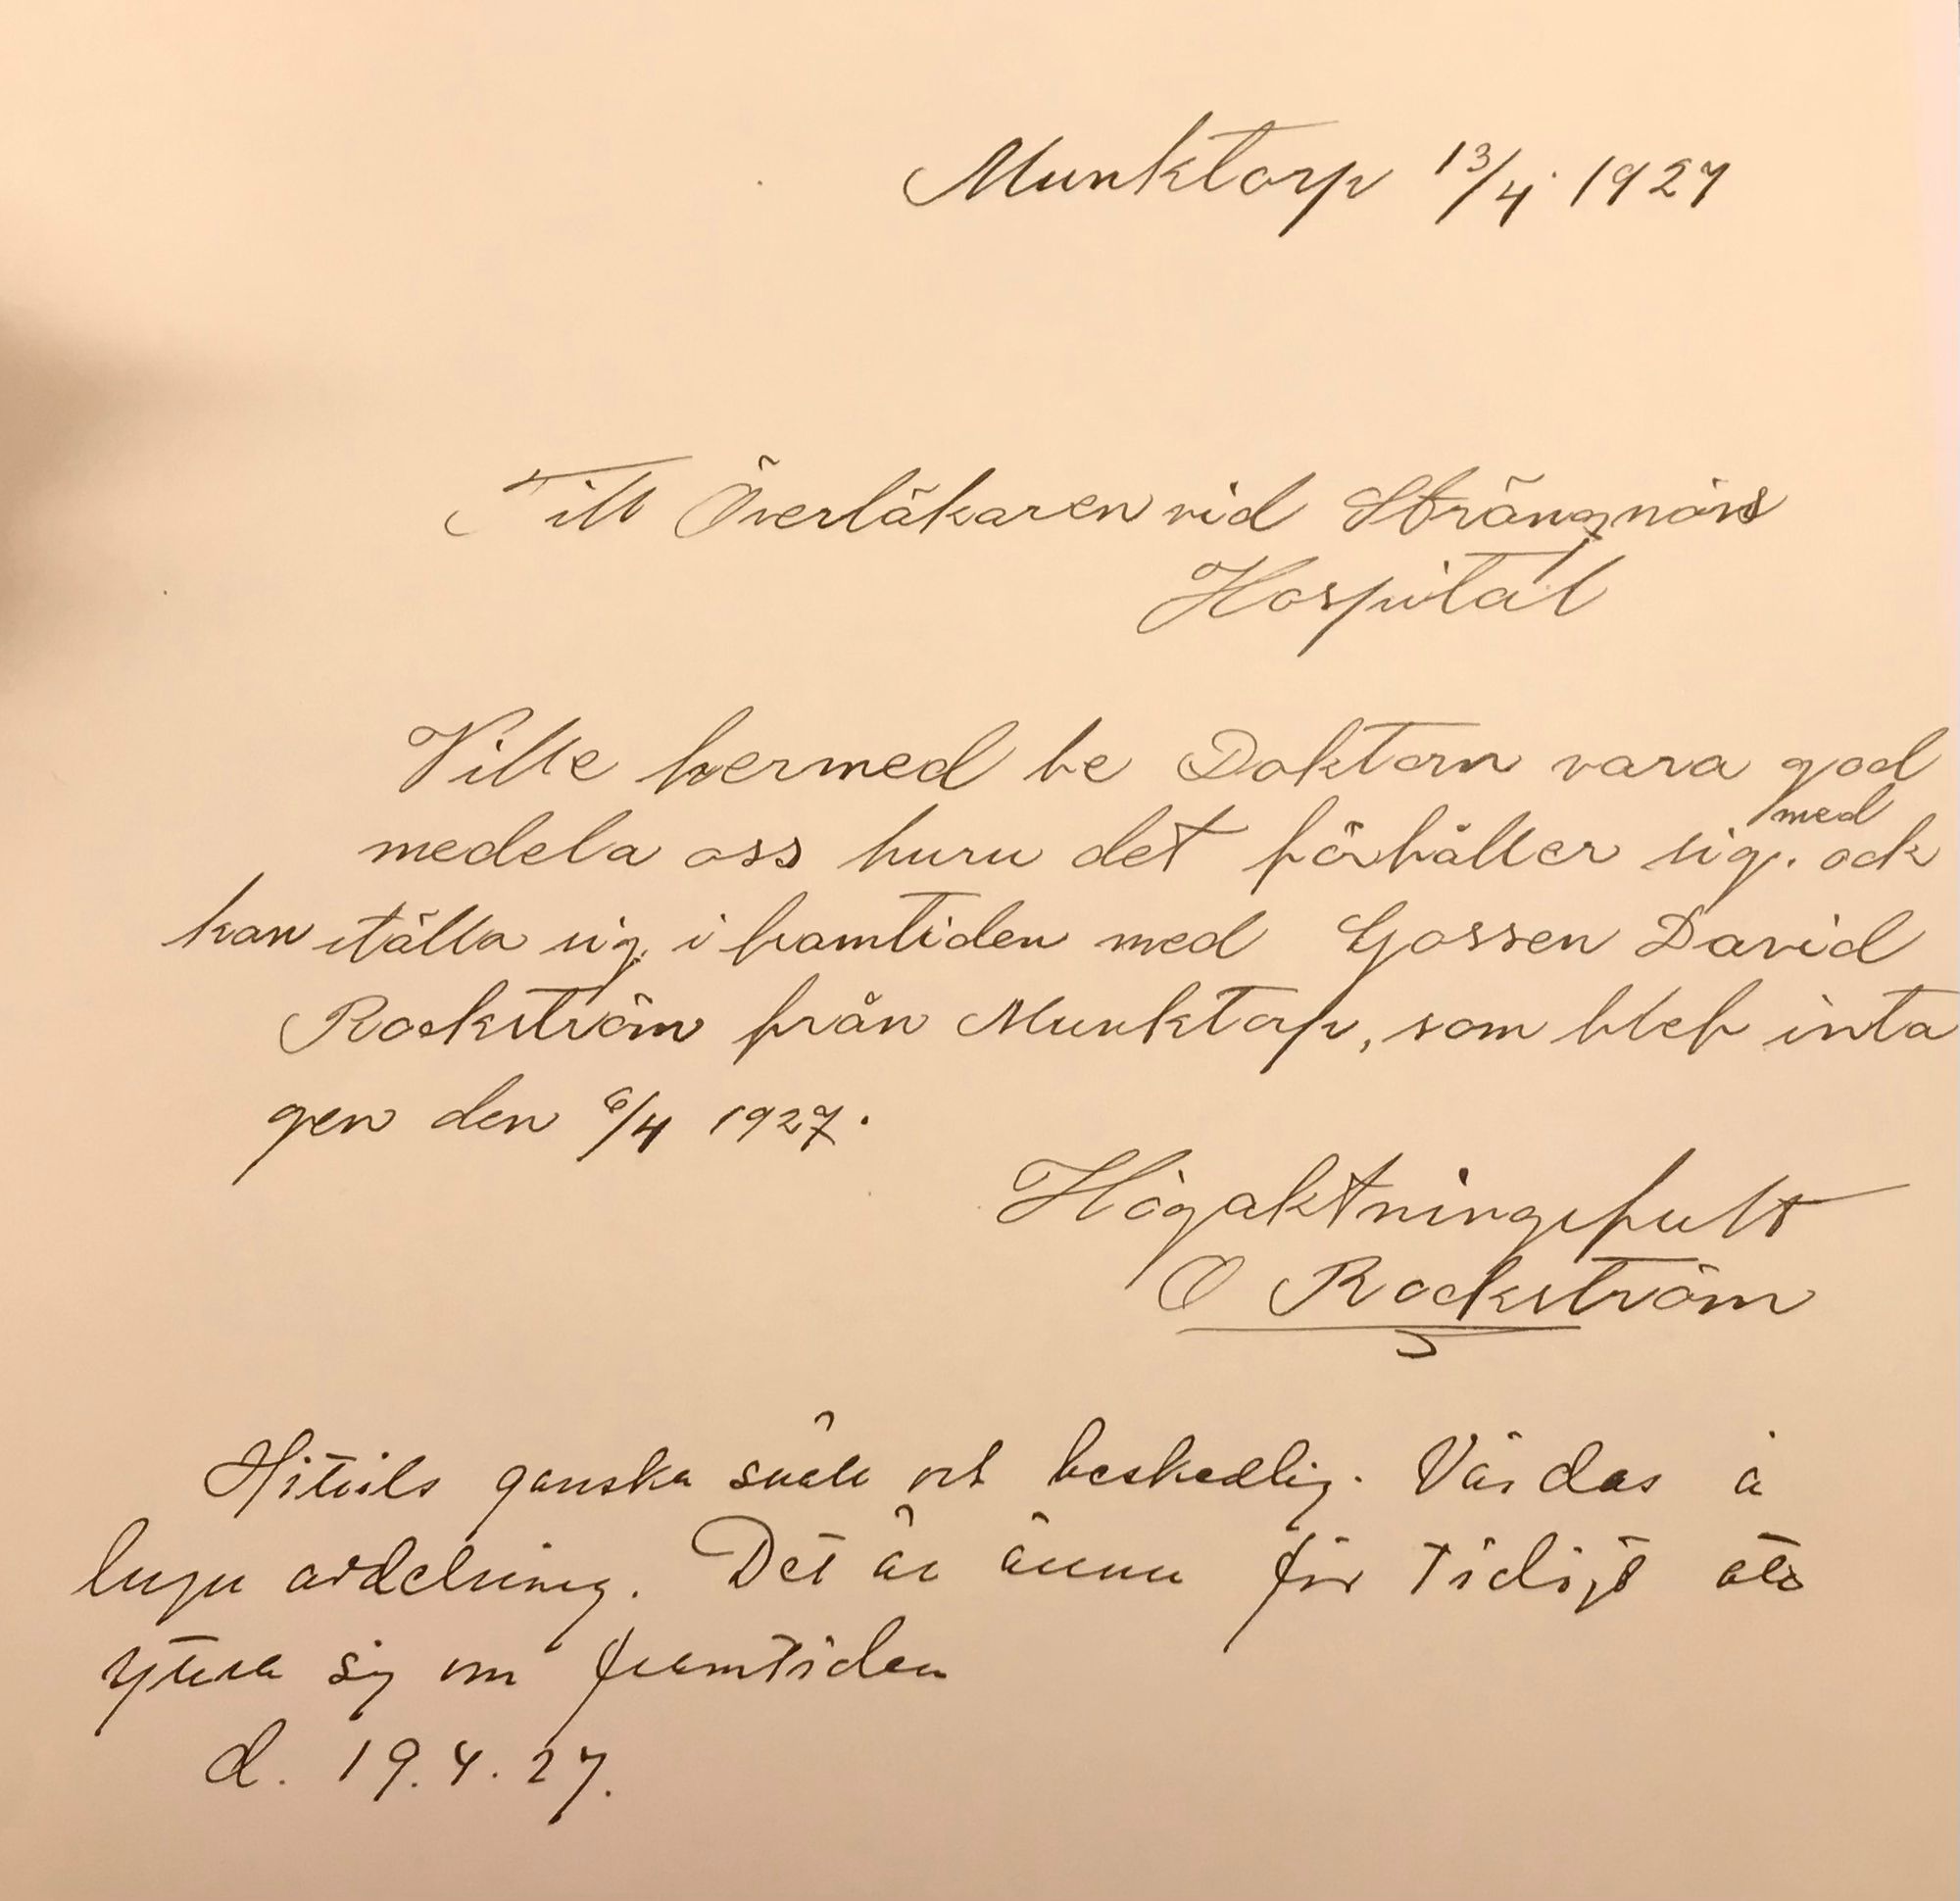 Munktorp 13/4 1927
Till Överläkaren vid Strängnäs
Hospital
Ville hermed be Doktorn vara god
med
medela oss huru det förhåller sig. ock
kan ställa sig i framtiden med Gossen David
Rockström från Munktorp, som blef inta
gen den 6/4 1927.
Högaktningsfullt
O Rockström
Hittils ganska snäll och beskedlig. Vårdas å
lugn avdelning. Det är ännu för tidigt att
yttra sig om framtiden
d. 19.4.27.